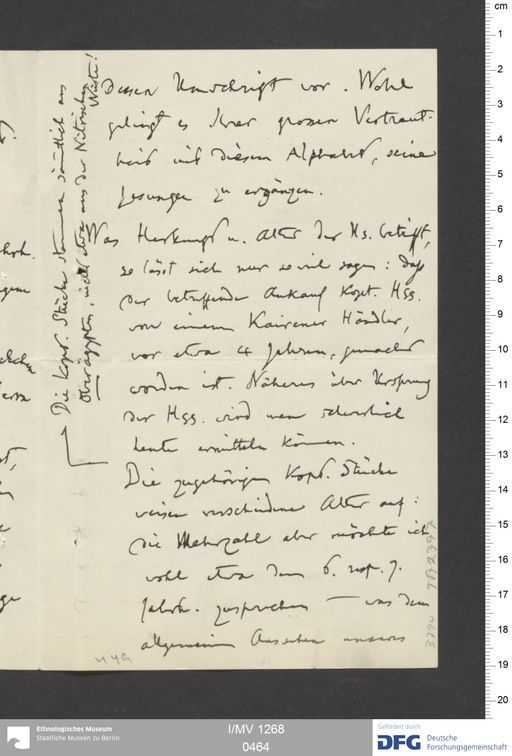 dessen Umschrift vor. Wohl
gelingt es Ihrer grossen Vertraut-
heit mit diesem Alphabet, seine
Lesungen zu ergänzen.
Was Herkunft u. Alter der Hs. betrifft,
so lässt sich nur soviel sagen: daß
der betreffende Ankauf kopt. Hss.
von einem Kairener Händler,
vor etwa 4 Jahren, gemacht
worden ist. Näheres über Ursprung
der Hss. wird man schwerlich
heute ermitteln können.
Die zugehörigen kopt. Stücke
weisen verschiedene Alter auf:
die Mehrzahl aber möchte ich
wohl etwa dem 6. resp. 7.
Jahrh. zusprechen — was dem
allgemeinen Aussehen unseres
Die kopt. Stücke stammen sämtlich aus
Oberägypten, nicht etwa aus der Nitrischen
Wüste!
449
TA 2397
cm
1
2
3
4
5
6
7
8
9
10
11
12
13
14
15
16
17
18
19
20
Ethnologisches Museum
Staatliche Museen zu Berlin
I/MV 1268
0464
Gefördert durch
DFG Deutsche
Forschungsgemeinschaft